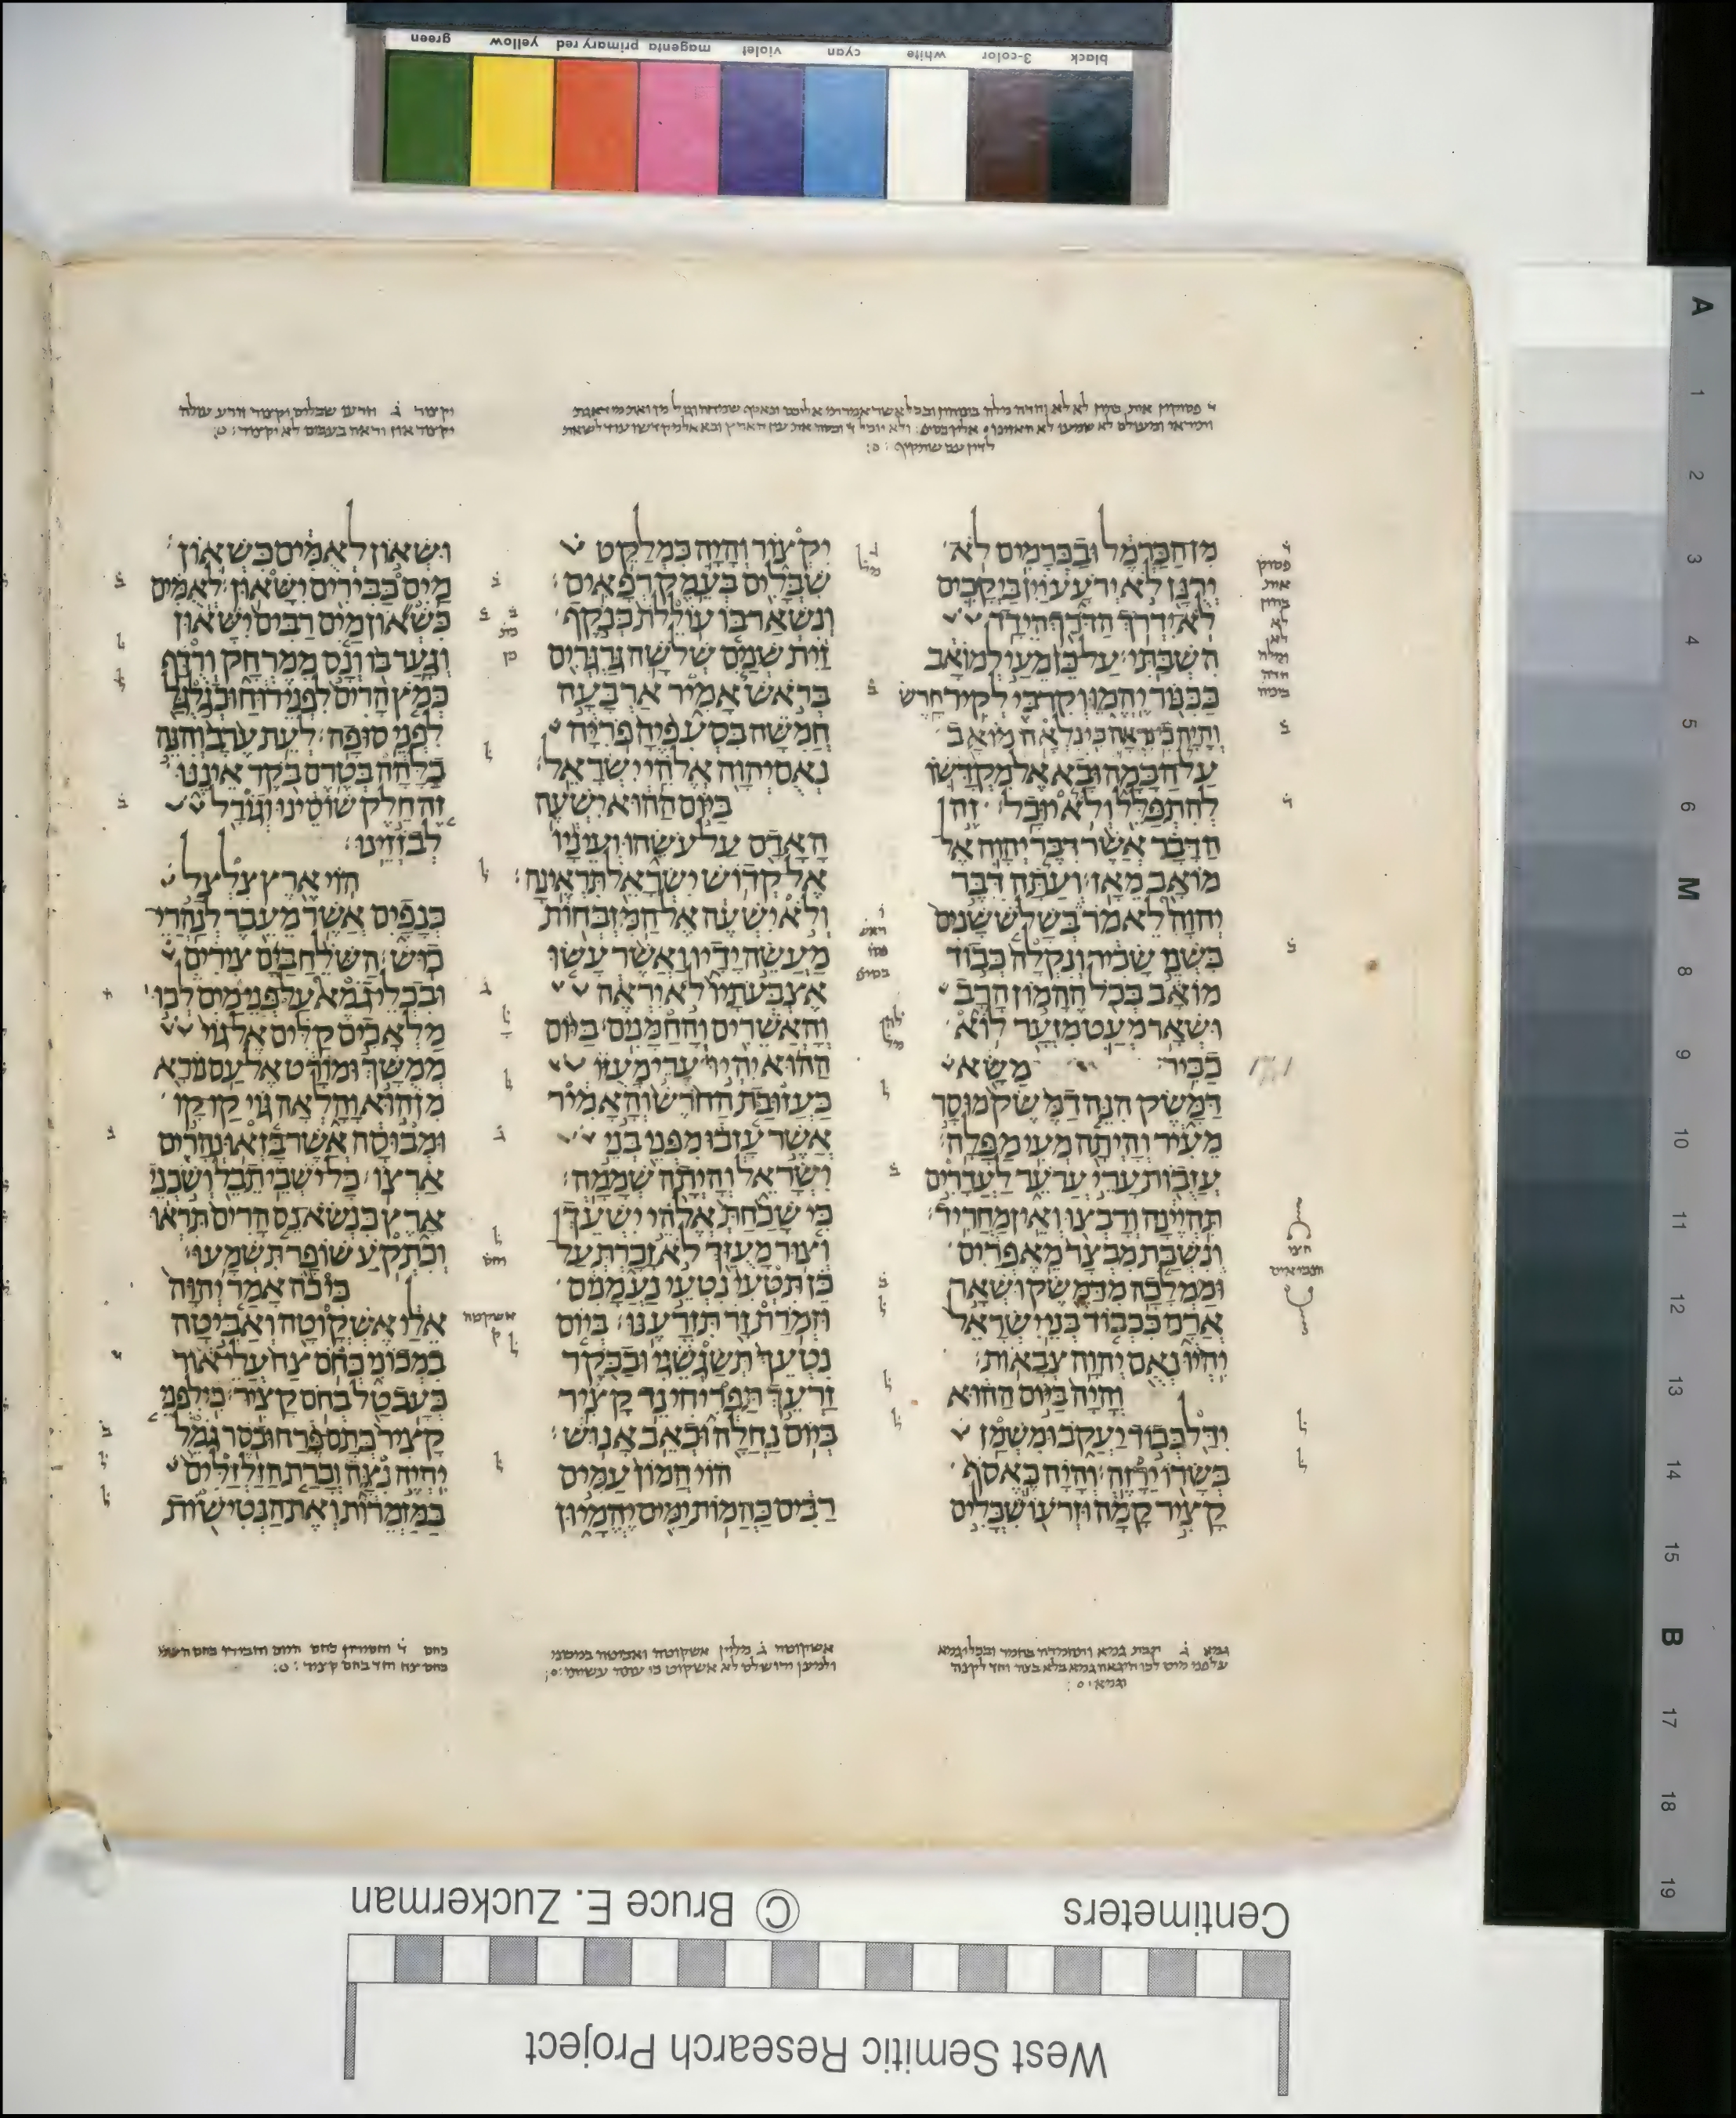 green yellow primary red magenta violet cyan white 3-color black
יקצור ג וזרעו שבלים יקצור זורע עולה
יקצור און וראה בעבים לא יקצור
מן הכרמל ובכרמים לא
ירנן לא ירעע יין ביקבים
לא ידרך הדרך הידד
השבתי על כן מעי למואב
ככנור יהמו וקרבי לקיר חרש
והיה כי נראה כי נלאה מואב
על הבמה ובא אל מקדשו
להתפלל ולא יוכל זה
הדבר אשר דבר יהוה אל
מואב מאז ועתה דבר
יהוה לאמר בשלש שנים
כשני שכיר ונקלה כבוד
מואב בכל ההמון הרב
ושאר מעט מזער לוא
כביר משא
דמשק הנה דמשק מוסר
מעיר והיתה מעי מפלה
עזבות ערי ערער לעדרים
תהיינה ורבצו ואין מחריד
ונשבת מבצר מאפרים
וממלכה מדמשק ושאר
ארם ככבוד בני ישראל
יהיו נאם יהוה צבאות
והיה ביום ההוא
ידל כבוד יעקב ומשמן
בשרו ירזה והיה כאסף
קציר קמה וזרעו שבלים
יקצור והיה כמלקט
שבלים בעמק רפאים
ונשאר בו עוללת כנקף
זית שנים שלשה גרגרים
בראש אמיר ארבעה
חמשה בסעפיה פריה
נאם יהוה אלהי ישראל
ביום ההוא ישעה
האדם על עשהו ועיניו
אל קדוש ישראל תראינה
ולא ישעה אל המזבחות
מעשה ידיו ואשר עשו
אצבעתיו לא יראה
והאשרים והחמנים ביום
ההוא יהיו ערי מעזו
כעזובת החרש והאמיר
אשר עזבו מפני בני
ישראל והיתה שממה
כי שכחת אלהי ישעך
וצור מעזך לא זכרת על
כן תטעי נטעי נעמנים
וזמרת זר תזרענו ביום
נטעך תשגשגי ובבקר
זרעך תפריחי נד קציר
ביום נחלה וכאב אנוש
הוי המון עמים
רבים כהמות ימים יהמיון
ושאון לאמים כשאון
מים כבירים ישאון לאמים
כשאון מים רבים ישאון
וגער בו ונס ממרחק ורדף
כמץ הרים לפני רוח וכגלגל
לפני סופה לעת ערב והנה
בלהה בטרם בקר איננו
זה חלק שוסינו וגורל
לבזזינו
הוי ארץ צלצל
כנפים אשר מעבר לנהרי
כוש השלח בים צירים
ובכלי גמא על פני מים לכו
מלאכים קלים אל גוי
ממשך ומורט אל עם נורא
מן הוא והלאה גוי קו קו
ומבוסה אשר בזאו נהרים
ארצו כל ישבי תבל ושכני
ארץ כנשא נס הרים תראו
וכתקע שופר תשמעו
כי כה אמר יהוה
אלי אשקוטה ואביטה
במכוני כחם צח עלי אור
כעב טל בחם קציר כי לפני
קציר כתם פרח ובסר גמל
יהיה נצה וכרת הזלזלים
במזמרות ואת הנטישות
חצי
הנביאים
גמא ג תבת גמא
על פני מים לכו היגאה גמא בלא בצה
אשקוטה ג מלין אשקוטה ואביטה במכוני
ולמען ירושלם לא אשקוט
כחם צח חד בחם קציר
Centimeters © Bruce E. Zuckerman
West Semitic Research Project
A 1 2 3 4 5 6 M 8 9 10 11 12 13 14 15 B 17 18 19